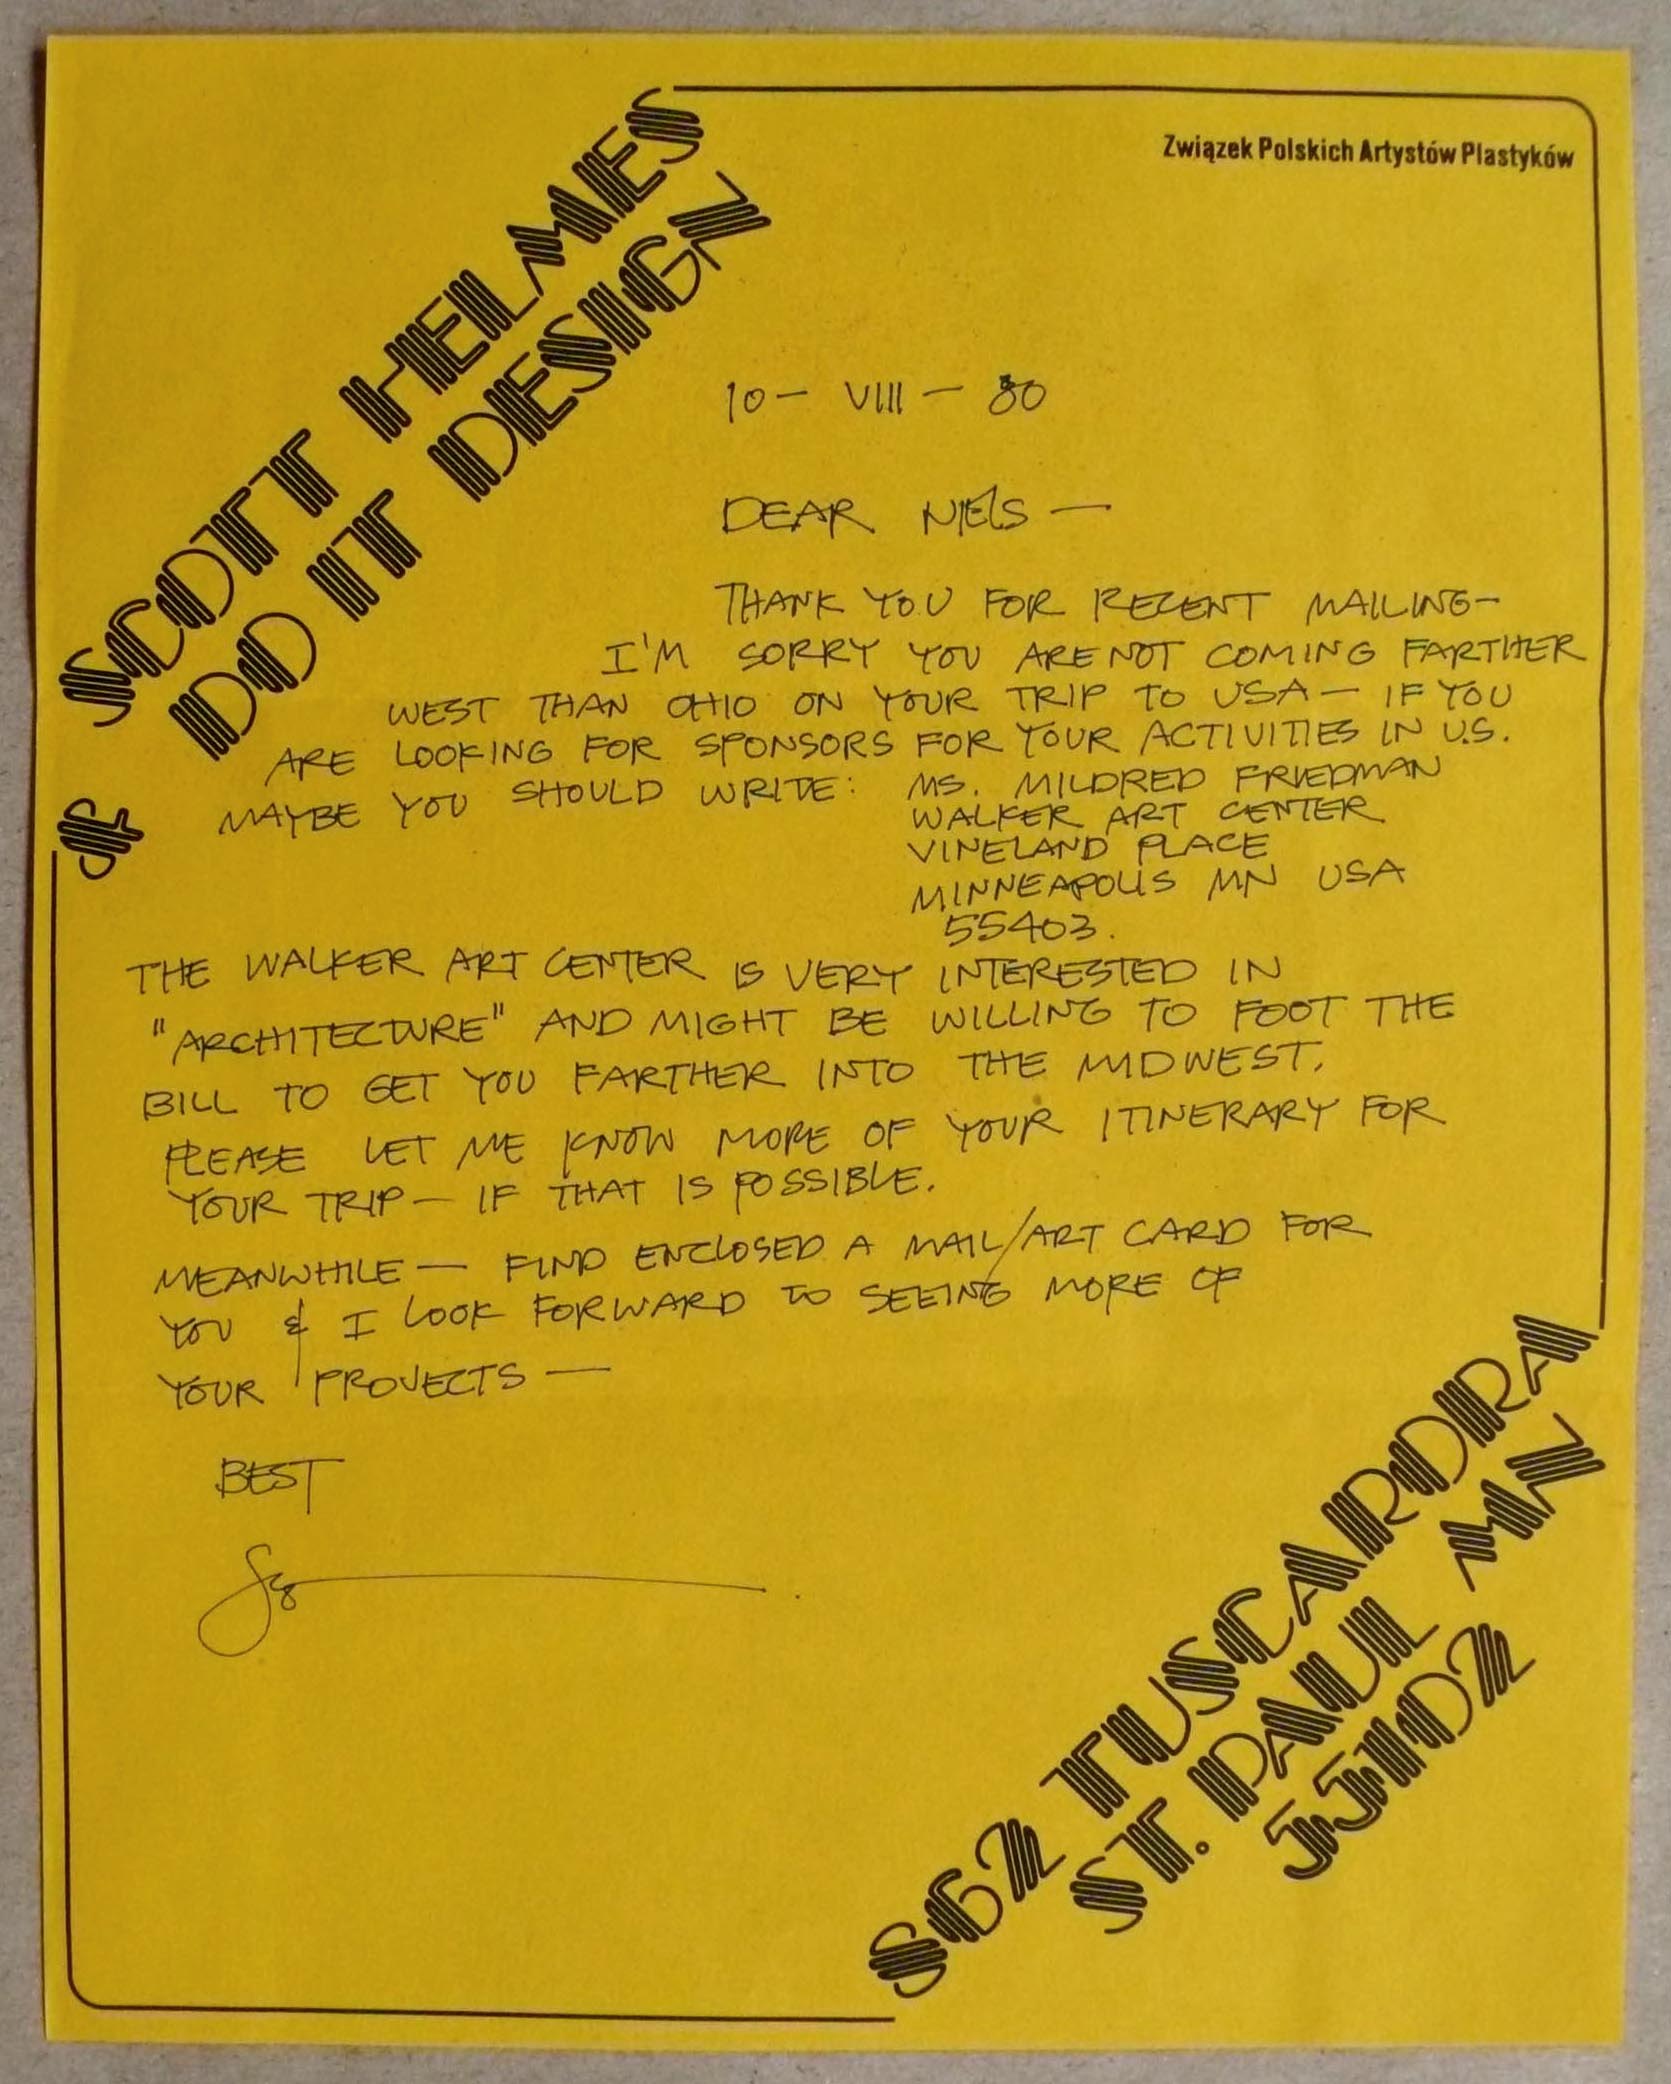 SCOTT HELMES
DO IT DESIGN
Związek Polskich Artystów Plastyków
10 - VIII - 80
DEAR NIELS —
THANK YOU FOR RECENT MAILING-
I'M SORRY YOU ARE NOT COMING FARTHER
WEST THAN OHIO ON YOUR TRIP TO USA - IF YOU
ARE LOOKING FOR SPONSORS FOR YOUR ACTIVITIES IN U.S.
MAYBE YOU SHOULD WRITE: MS. MILDRED FRIEDMAN
WALKER ART CENTER
VINELAND PLACE
MINNEAPOLIS MN USA
55403.
THE WALKER ART CENTER IS VERY INTERESTED IN
"ARCHITECTURE" AND MIGHT BE WILLING TO FOOT THE
BILL TO GET YOU FARTHER INTO THE MIDWEST.
PLEASE LET ME KNOW MORE OF YOUR ITINERARY FOR
YOUR TRIP - IF THAT IS POSSIBLE.
MEANWHILE — FIND ENCLOSED A MAIL/ART CARD FOR
YOU & I LOOK FORWARD TO SEEING MORE OF
YOUR PROJECTS —
BEST
862 TUSCARORA
ST. PAUL MN
55102